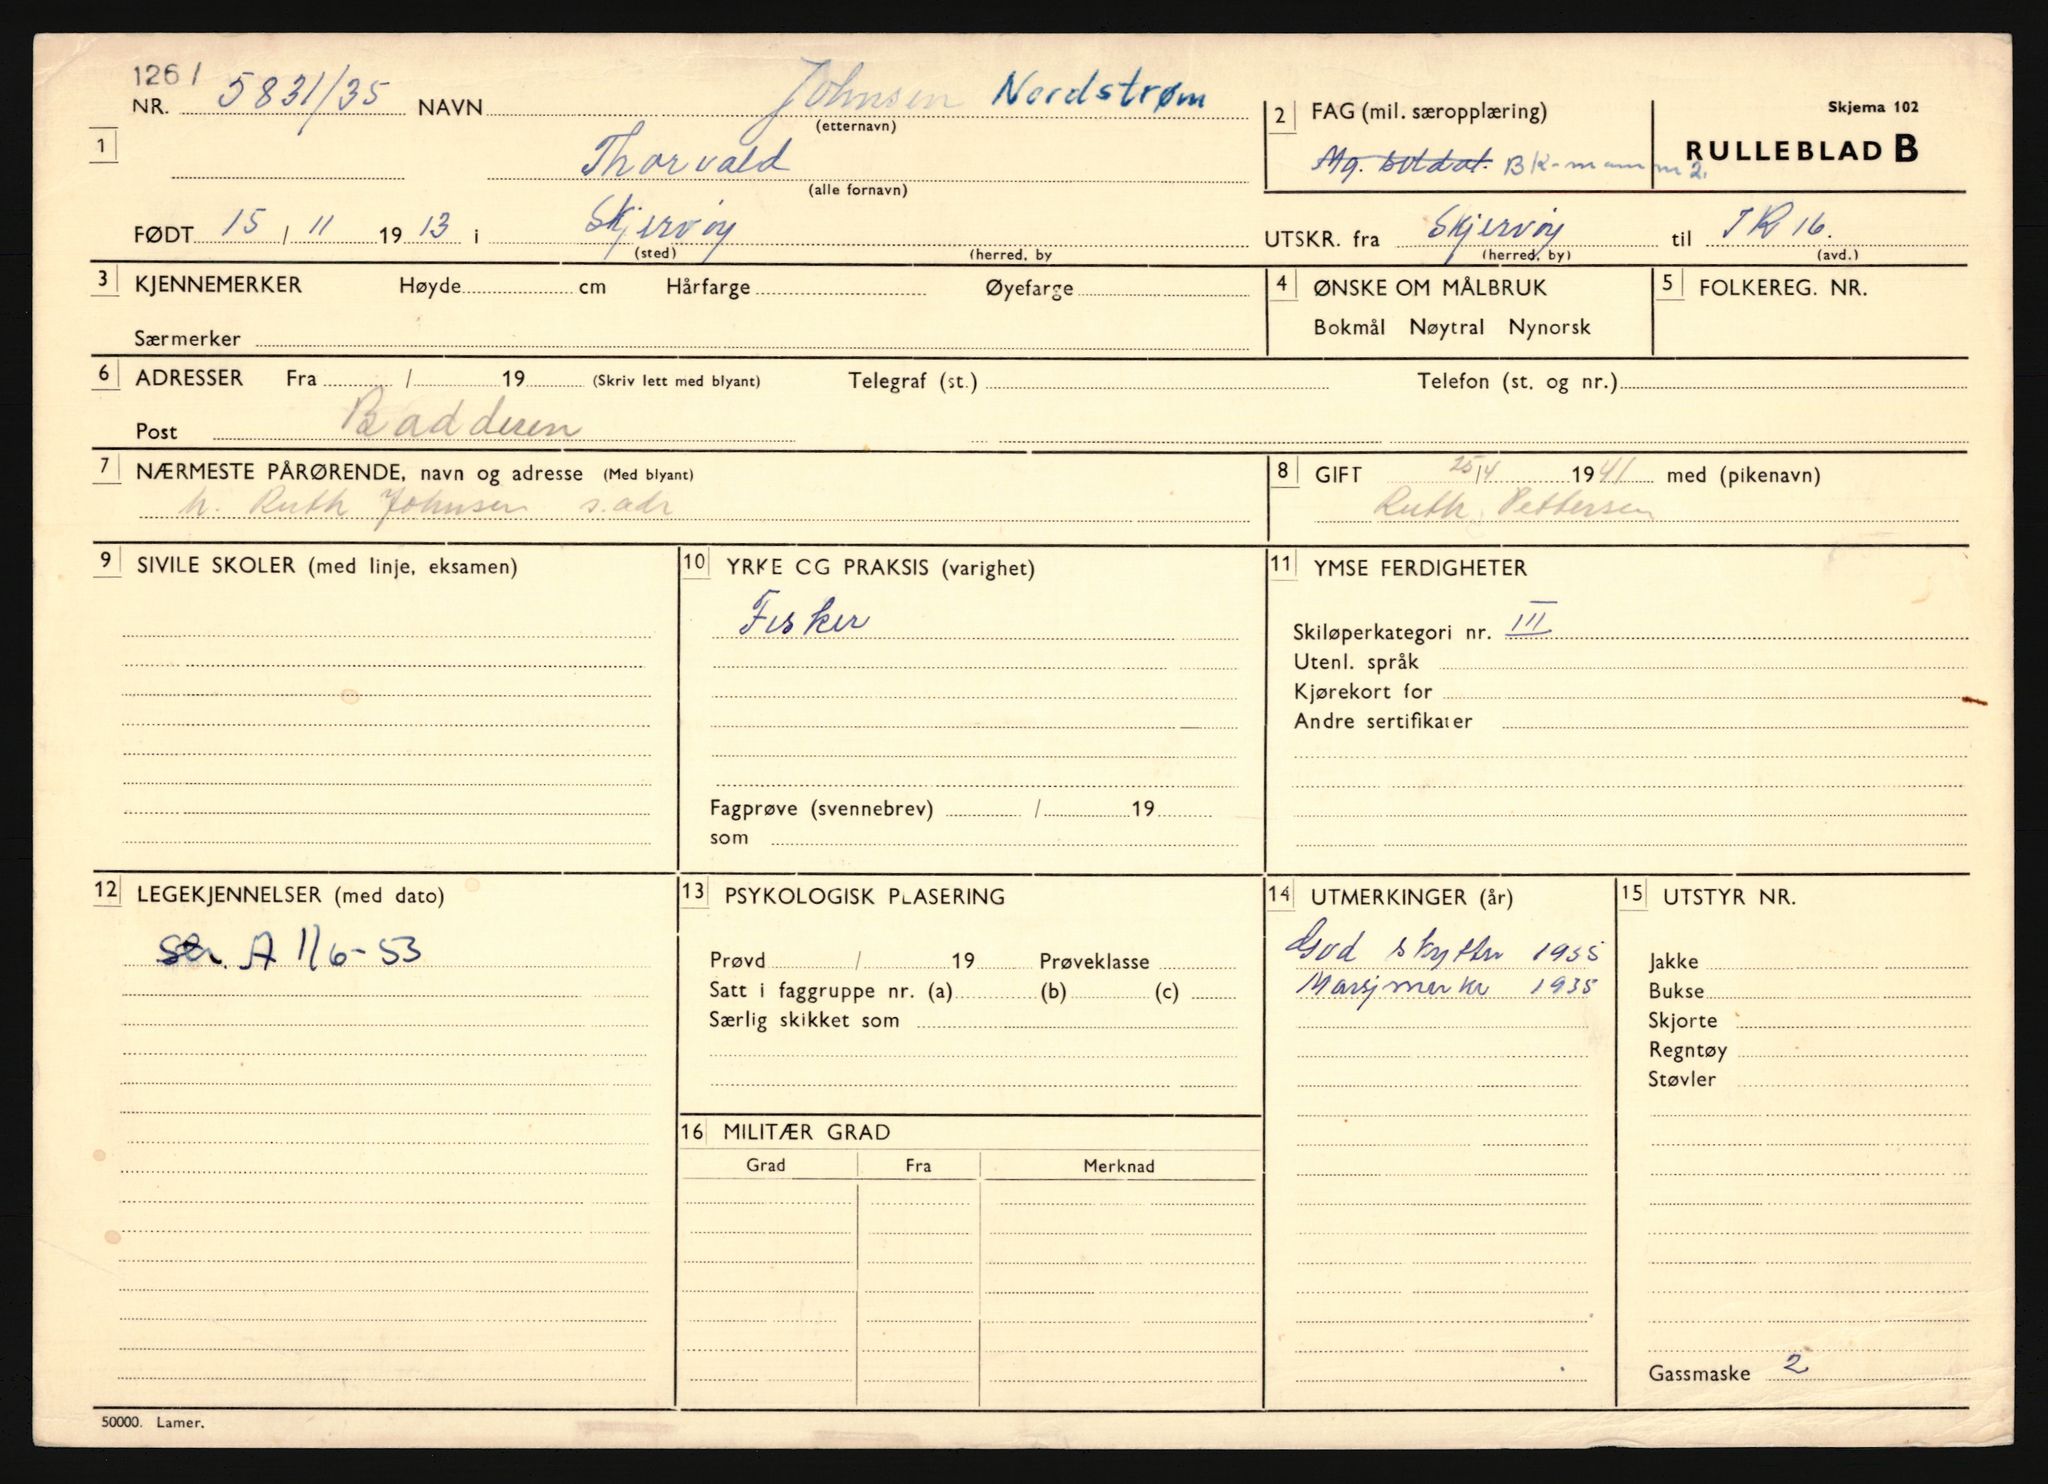 1261
NR. 5831/35 NAVN Johnsen Nordstrøm
(etternavn)
2 FAG (mil. særopplæring)
Skjema 102
RULLEBLAD B
1
Thorvald
(alle fornavn)
Mg. soldat. BK-mann m2.
FØDT 15 / 11 1913 i Skjervøy
(sted) (herred, by
UTSKR. fra Skjervøy til IR 16.
(herred, by) (avd.)
3 KJENNEMERKER Høyde cm Hårfarge Øyefarge
Særmerker
4 ØNSKE OM MÅLBRUK
Bokmål Nøytral Nynorsk
5 FOLKEREG. NR.
6 ADRESSER Fra / 19 (Skriv lett med blyant) Telegraf (st.) Telefon (st. og nr.)
Post Badderen
7 NÆRMESTE PÅRØRENDE, navn og adresse (Med blyant)
h. Ruth Johnsen s.adr
8 GIFT 25/4 1941 med (pikenavn)
Ruth Pettersen
9 SIVILE SKOLER (med linje, eksamen)
10 YRKE CG PRAKSIS (varighet)
Fisker
Fagprøve (svennebrev) / 19
som
11 YMSE FERDIGHETER
Skiløperkategori nr. III
Utenl. språk
Kjørekort for
Andre sertifikater
12 LEGEKJENNELSER (med dato)
str. A 1/6-53
13 PSYKOLOGISK PLASERING
Prøvd / 19 Prøveklasse
Satt i faggruppe nr. (a) (b) (c)
Særlig skikket som
14 UTMERKINGER (år)
God skytter 1935
Marsjmerke 1935
15 UTSTYR NR.
Jakke
Bukse
Skjorte
Regntøy
Støvler
Gassmaske 2
16 MILITÆR GRAD
Grad Fra Merknad
50000. Lamer.